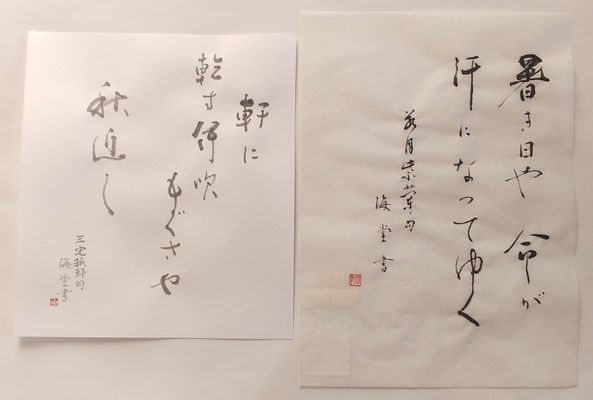 暑き日や 命が
汗になってゆく
句 海堂書
軒に
乾す伊吹
もぐさや
秋近し
三宅 句
海堂書